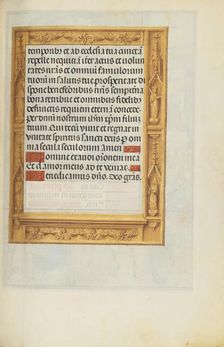 temporibus et ab ecclesia tua cunctā
repelle nequitiā iter actus et volun
tates nr̄as et omniū famulorum
tuorum in salutis tue prosperitate dis
pone benefactoribus nr̄is sempiterna
bona retribue et omnibus fidelib
defunctis requiem eternā concede
per dominum nostrum ihm̄ xpm̄ filium
tuum Qui tecum vivit et regnat in
unitate spiritus sancti deus per om
nia secula seculorum Amen
Domine exaudi orationem mea
Et clamor meus ad te veniat
Benedicamus dnō. Deo gras.